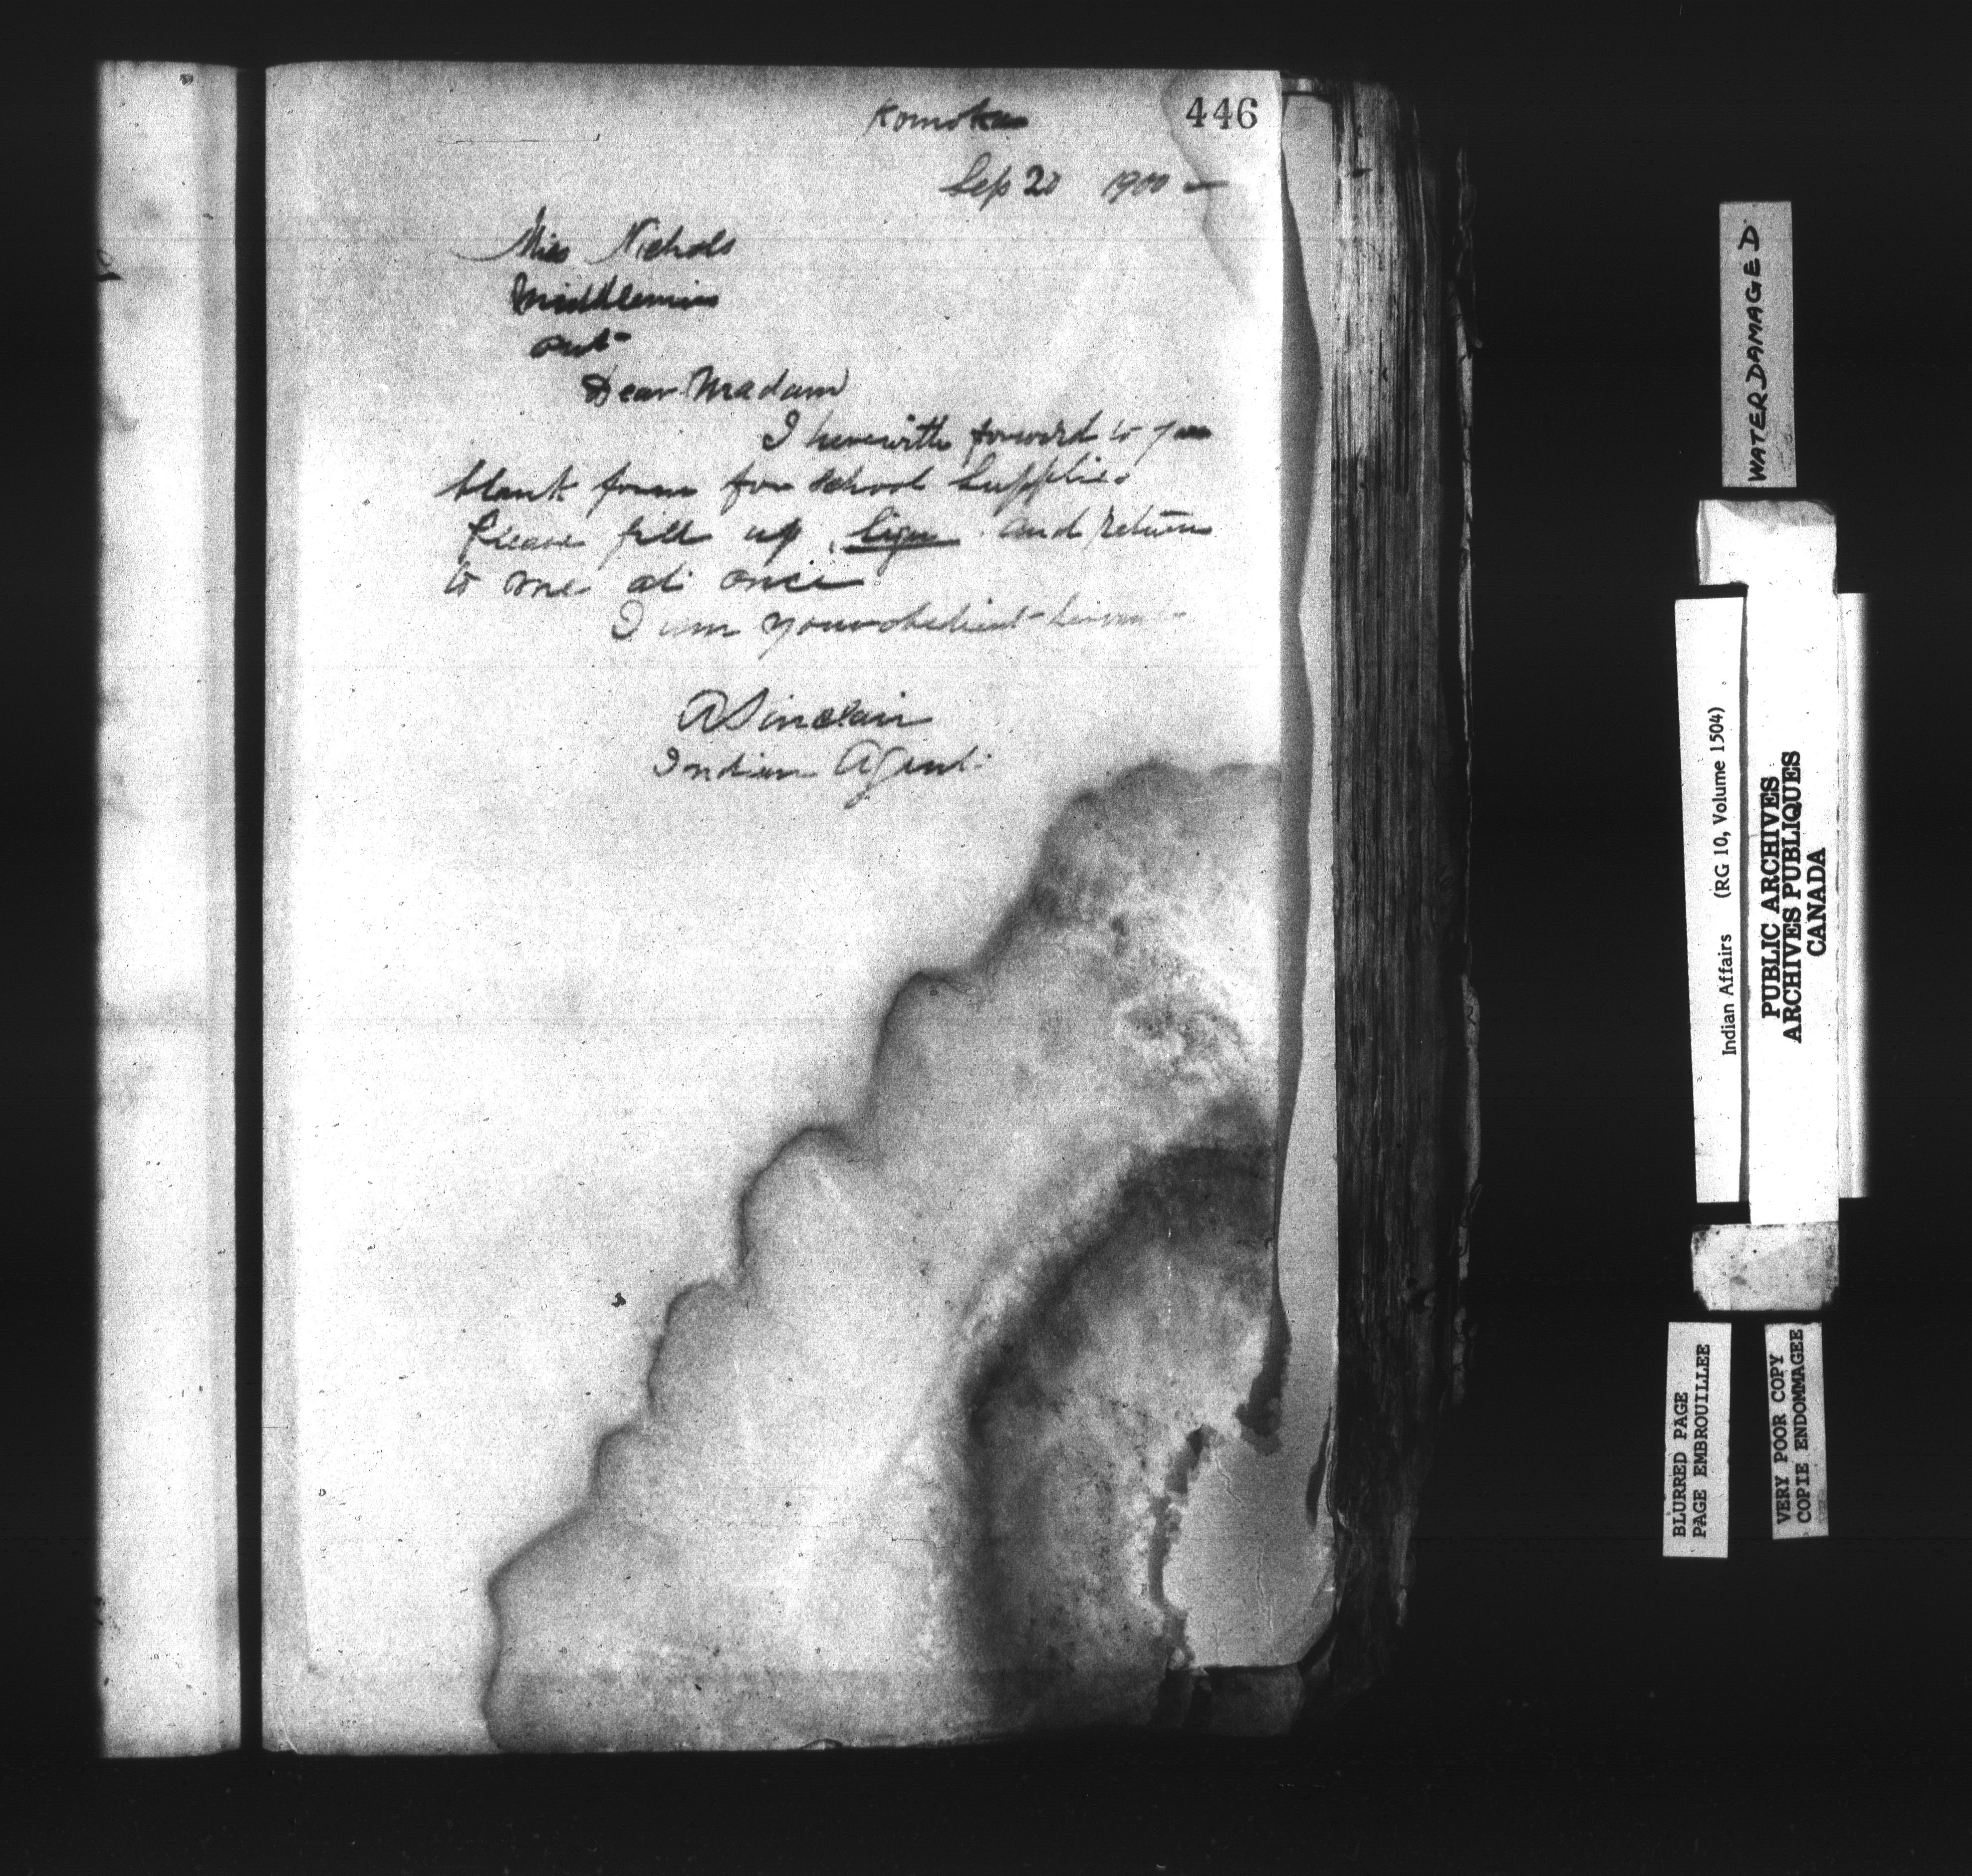 446
Komoka
Sep 20 1900
Miss Nichols
Middlemiss
Ont
Dear Madam
I herewith forward to you
blank form for School Supplies
Please fill up Sign and return
to me at once
I am your obedient Servant
A Sinclair
Indian Agent
WATER DAMAGED
Indian Affairs (RG 10, Volume 1504)
PUBLIC ARCHIVES
ARCHIVES PUBLIQUES
CANADA
BLURRED PAGE
PAGE EMBROUILLEE
VERY POOR COPY
COPIE ENDOMMAGEE